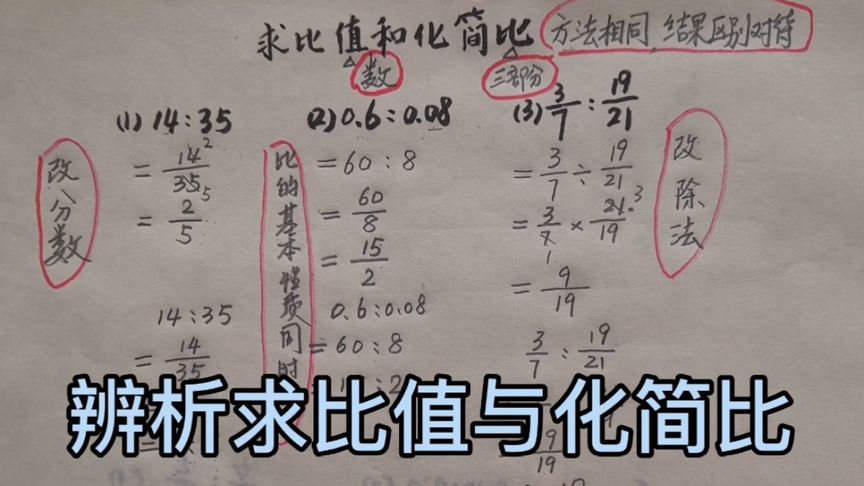 求比值和化简比
方法相同，结果区别对待
数
三部分
(1) 14:35
= 14/35
= 2/5
2
5
改分数
14:35
= 14/35
(2) 0.6:0.08
= 60:8
= 60/8
= 15/2
0.6:0.08
= 60:8
比的基本性质同时
(3) 3/7 : 19/21
= 3/7 ÷ 19/21
= 3/7 × 21/19
3
1
= 9/19
3/7 : 19/21
9/19
改除法
辨析求比值与化简比